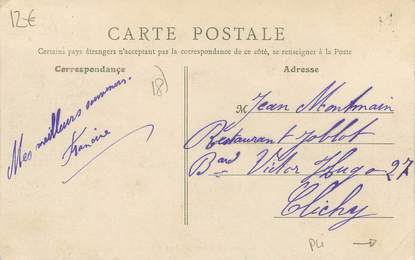 12-€
CARTE POSTALE
Certains pays étrangers n'acceptant pas la correspondance de ce côté, se renseigner à la Poste
Correspondance
18)
Mes meilleurs souvenirs.
Francine
Adresse
M Jean Montmain
Restaurant Jollot
Bard Victor Hugo 27
Clichy